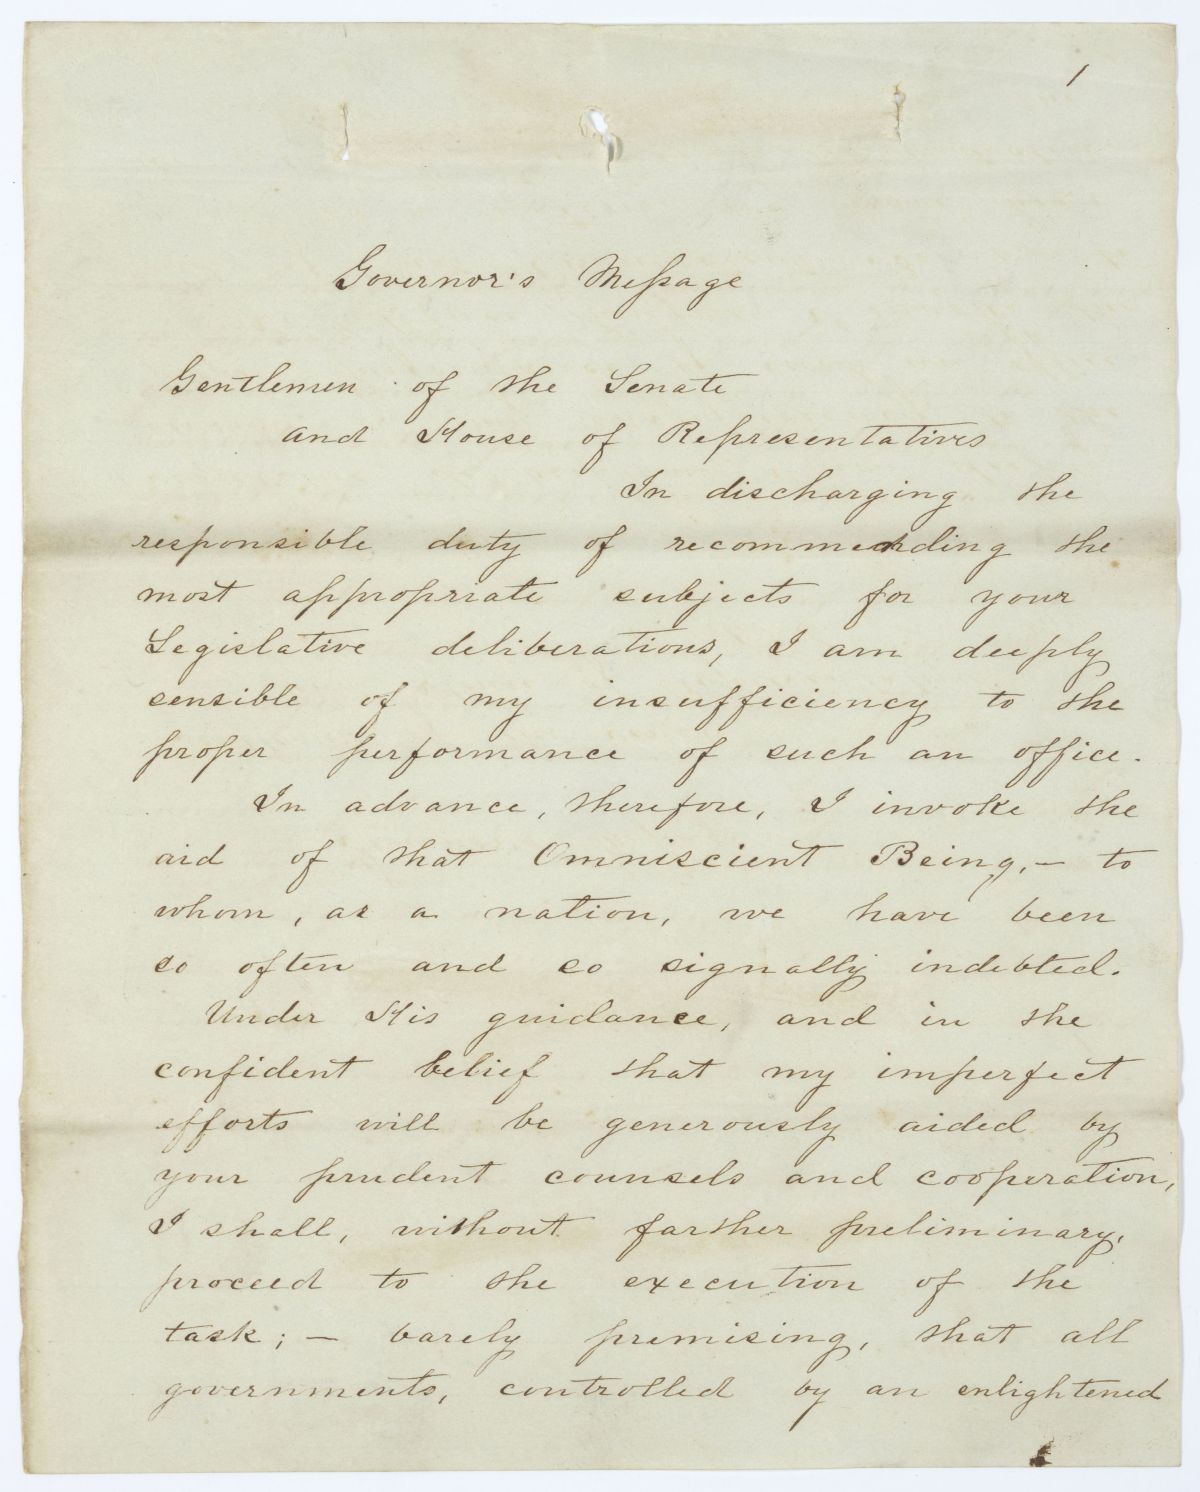 1
Governor's Message
Gentlemen of the Senate
and House of Representatives
In discharging the
responsible duty of recommending the
most appropriate subjects for your
Legislative deliberations, I am deeply
sensible of my insufficiency to the
proper performance of such an office.
In advance, therefore, I invoke the
aid of that Omniscient Being, — to
whom, as a nation, we have been
so often and so signally indebted.
Under His guidance, and in the
confident belief that my imperfect
efforts will be generously aided by
your prudent counsels and cooperation,
I shall, without farther preliminary,
proceed to the execution of the
task; — barely premising, that all
governments, controlled by an enlightened